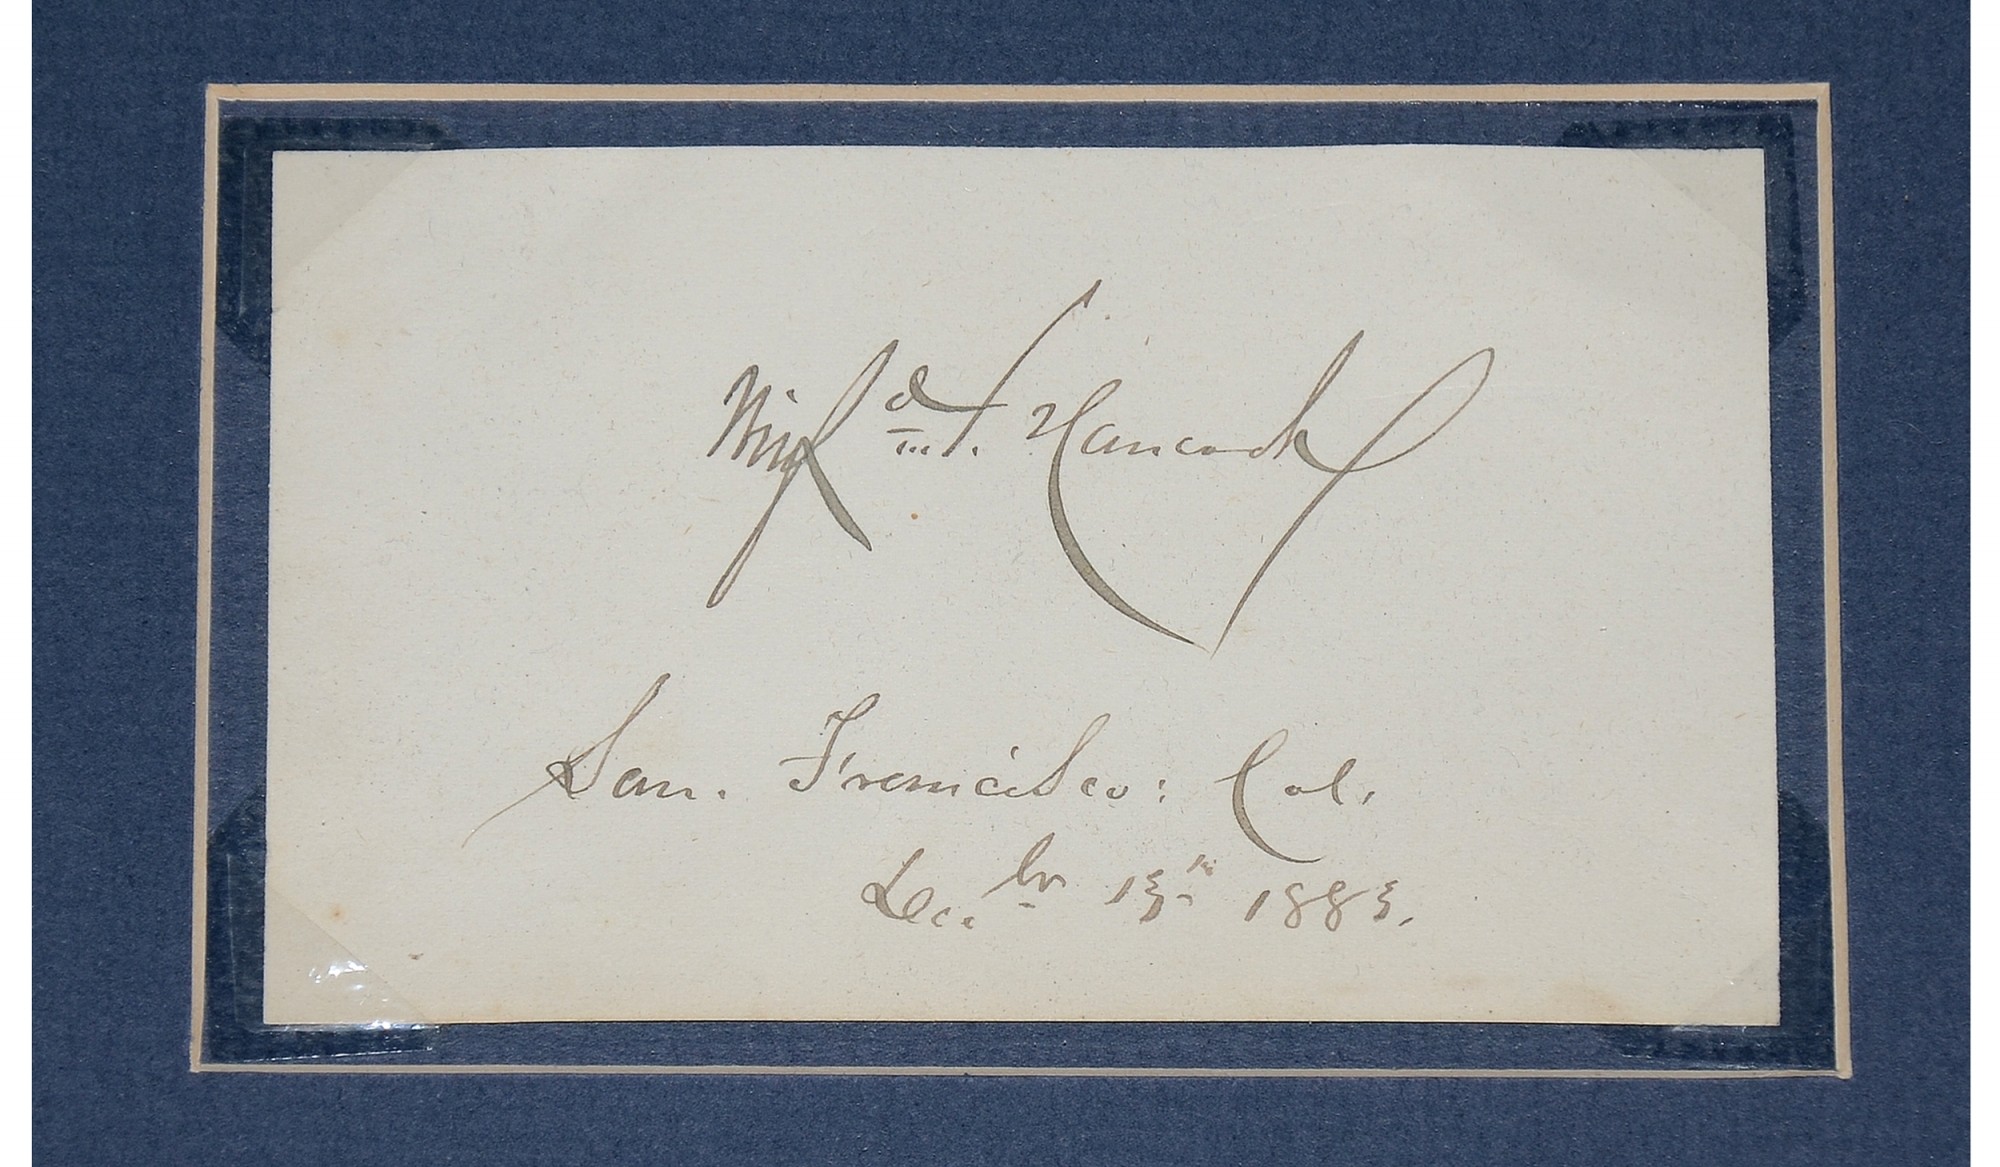 Winf'd S. Hancock
San. Francisco: Cal.
Dec.br 13th 1883.